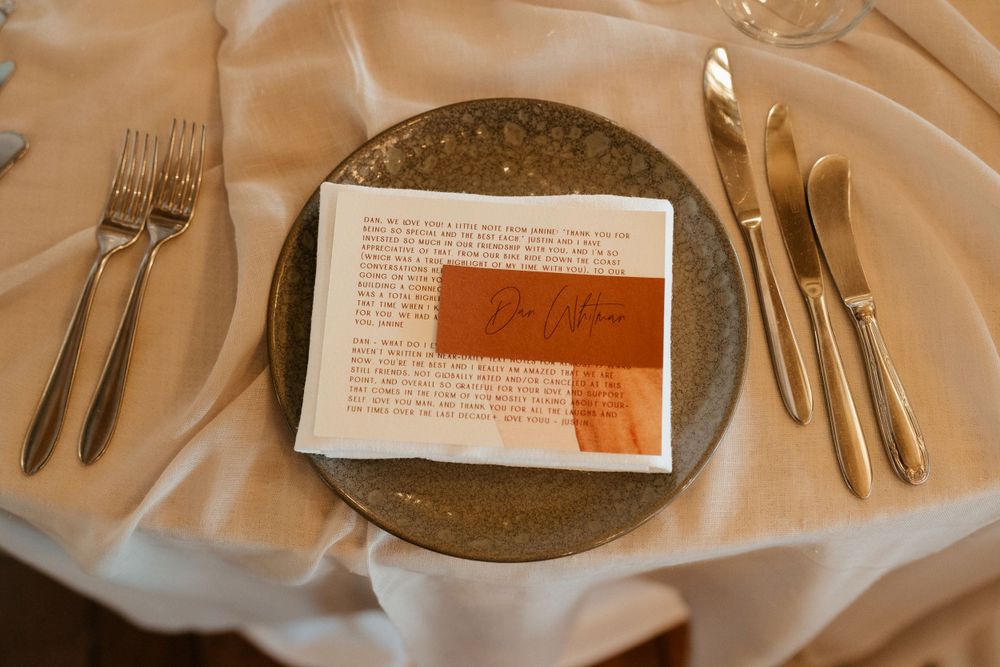 DAN, WE LOVE YOU! A LITTLE NOTE FROM JANINE: "THANK YOU FOR
BEING SO SPECIAL AND THE BEST EACH." JUSTIN AND I HAVE
INVESTED SO MUCH IN OUR FRIENDSHIP WITH YOU, AND I'M SO
APPRECIATIVE OF THAT. FROM OUR BIKE RIDE DOWN THE COAST
(WHICH WAS A TRUE HIGHLIGHT OF MY TIME WITH YOU), TO OUR
CONVERSATIONS
GOING ON WITH
BUILDING A
WAS A TOTAL
THAT TIME WHEN I
FOR YOU. WE HAD
YOU, JANINE
Dan Whitman
DAN - WHAT DO I
HAVEN'T WRITTEN IN NEAR-DAILY TEXT NOTES FOR
NOW, YOU'RE THE BEST AND I REALLY AM AMAZED THAT WE ARE
STILL FRIENDS, NOT GLOBALLY HATED AND/OR CANCELED AT THIS
POINT, AND OVERALL SO GRATEFUL FOR YOUR LOVE AND SUPPORT
THAT COMES IN THE FORM OF YOU MOSTLY TALKING ABOUT YOUR-
SELF. LOVE YOU MAN, AND THANK YOU FOR ALL THE LAUGHS AND
FUN TIMES OVER THE LAST DECADE+. LOVE YOUU - JUSTIN